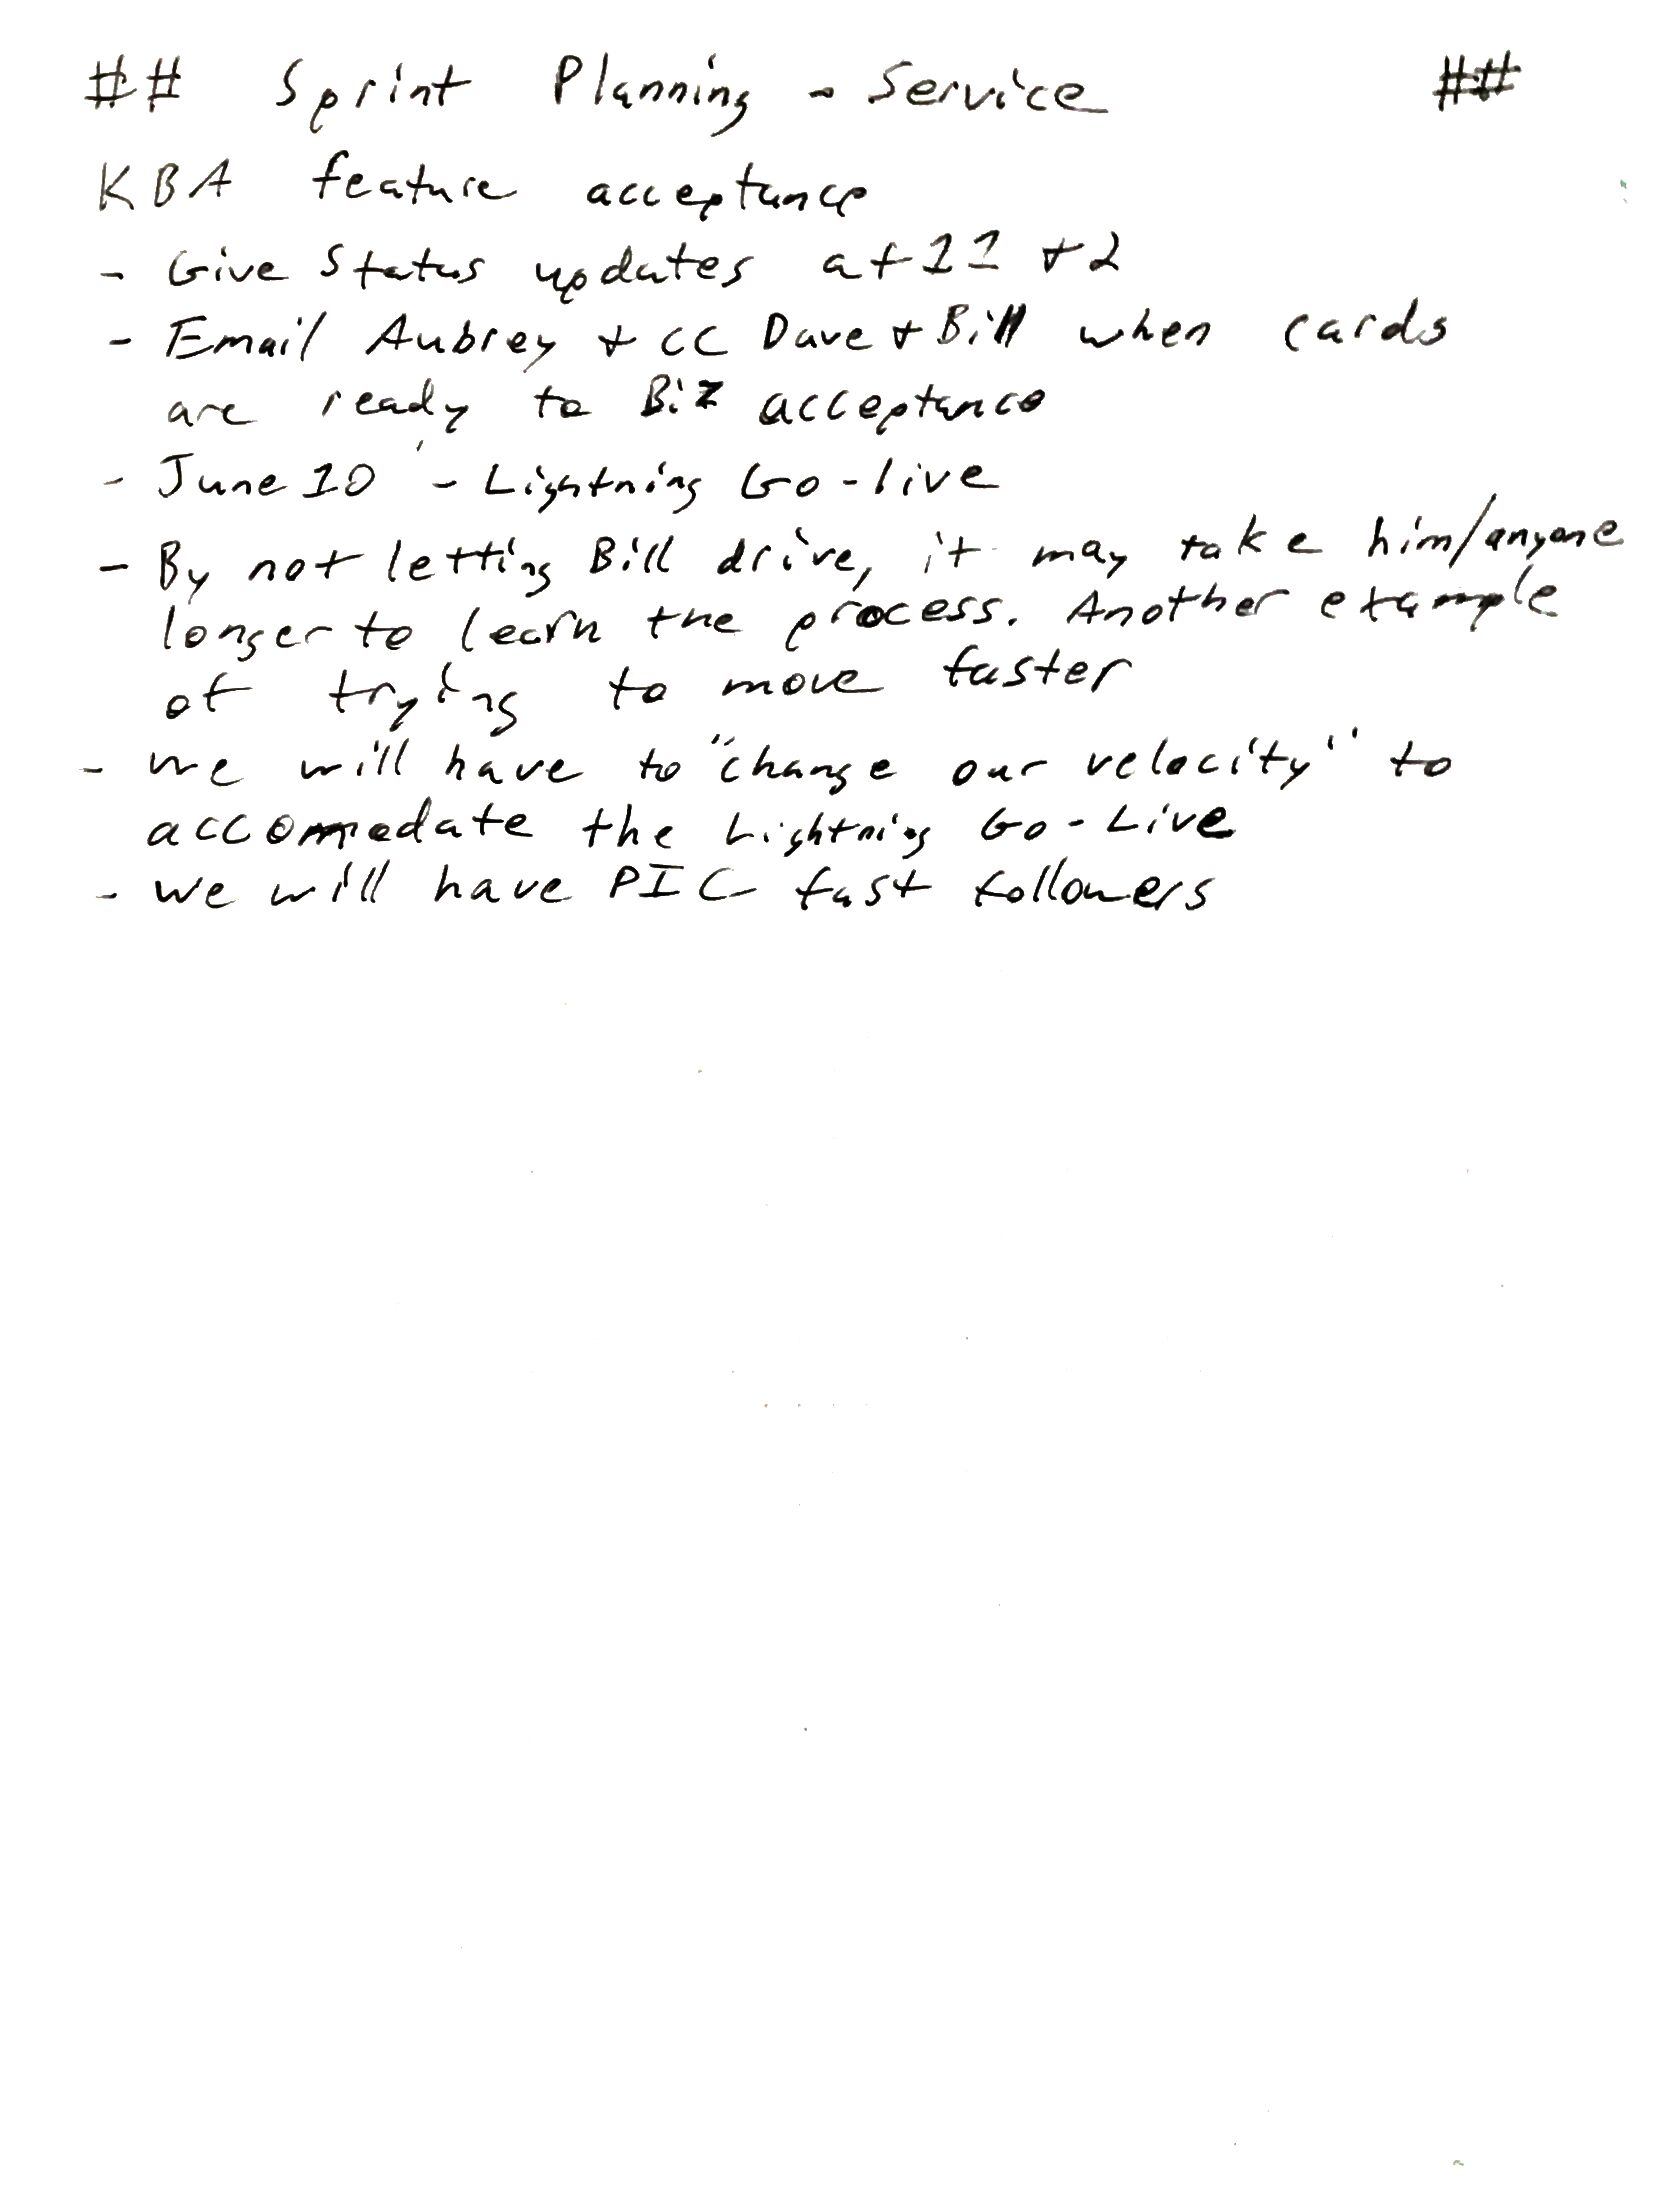 ## Sprint Planning - Service ##
KBA feature acceptance
- Give Status updates at 11 + 2
- Email Aubrey + CC Dave + Bill when cards
are ready to Biz acceptance
- June 10 - Lightning Go-live
- By not letting Bill drive, it may take him/anyone
longer to learn the process. Another example
of trying to move faster
- We will have to "change our velocity" to
accomodate the Lightning Go-Live
- We will have PIC fast followers